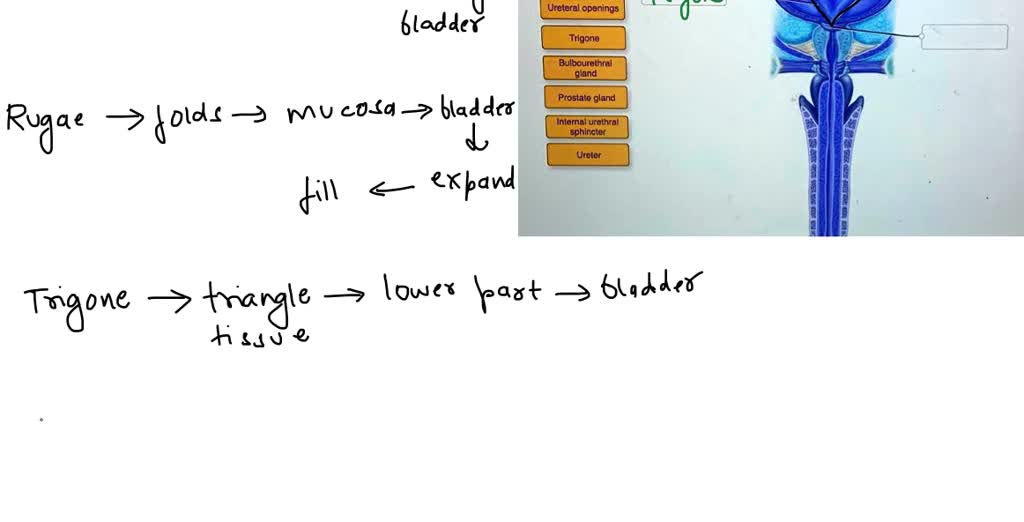 bladder
Rugae → folds → mucosa → bladder
↓
fill ← expand
Trigone → triangle → lower part → bladder
tissue
Ureteral openings
Trigone
Bulbourethral
gland
Prostate gland
Internal urethral
sphincter
Ureter